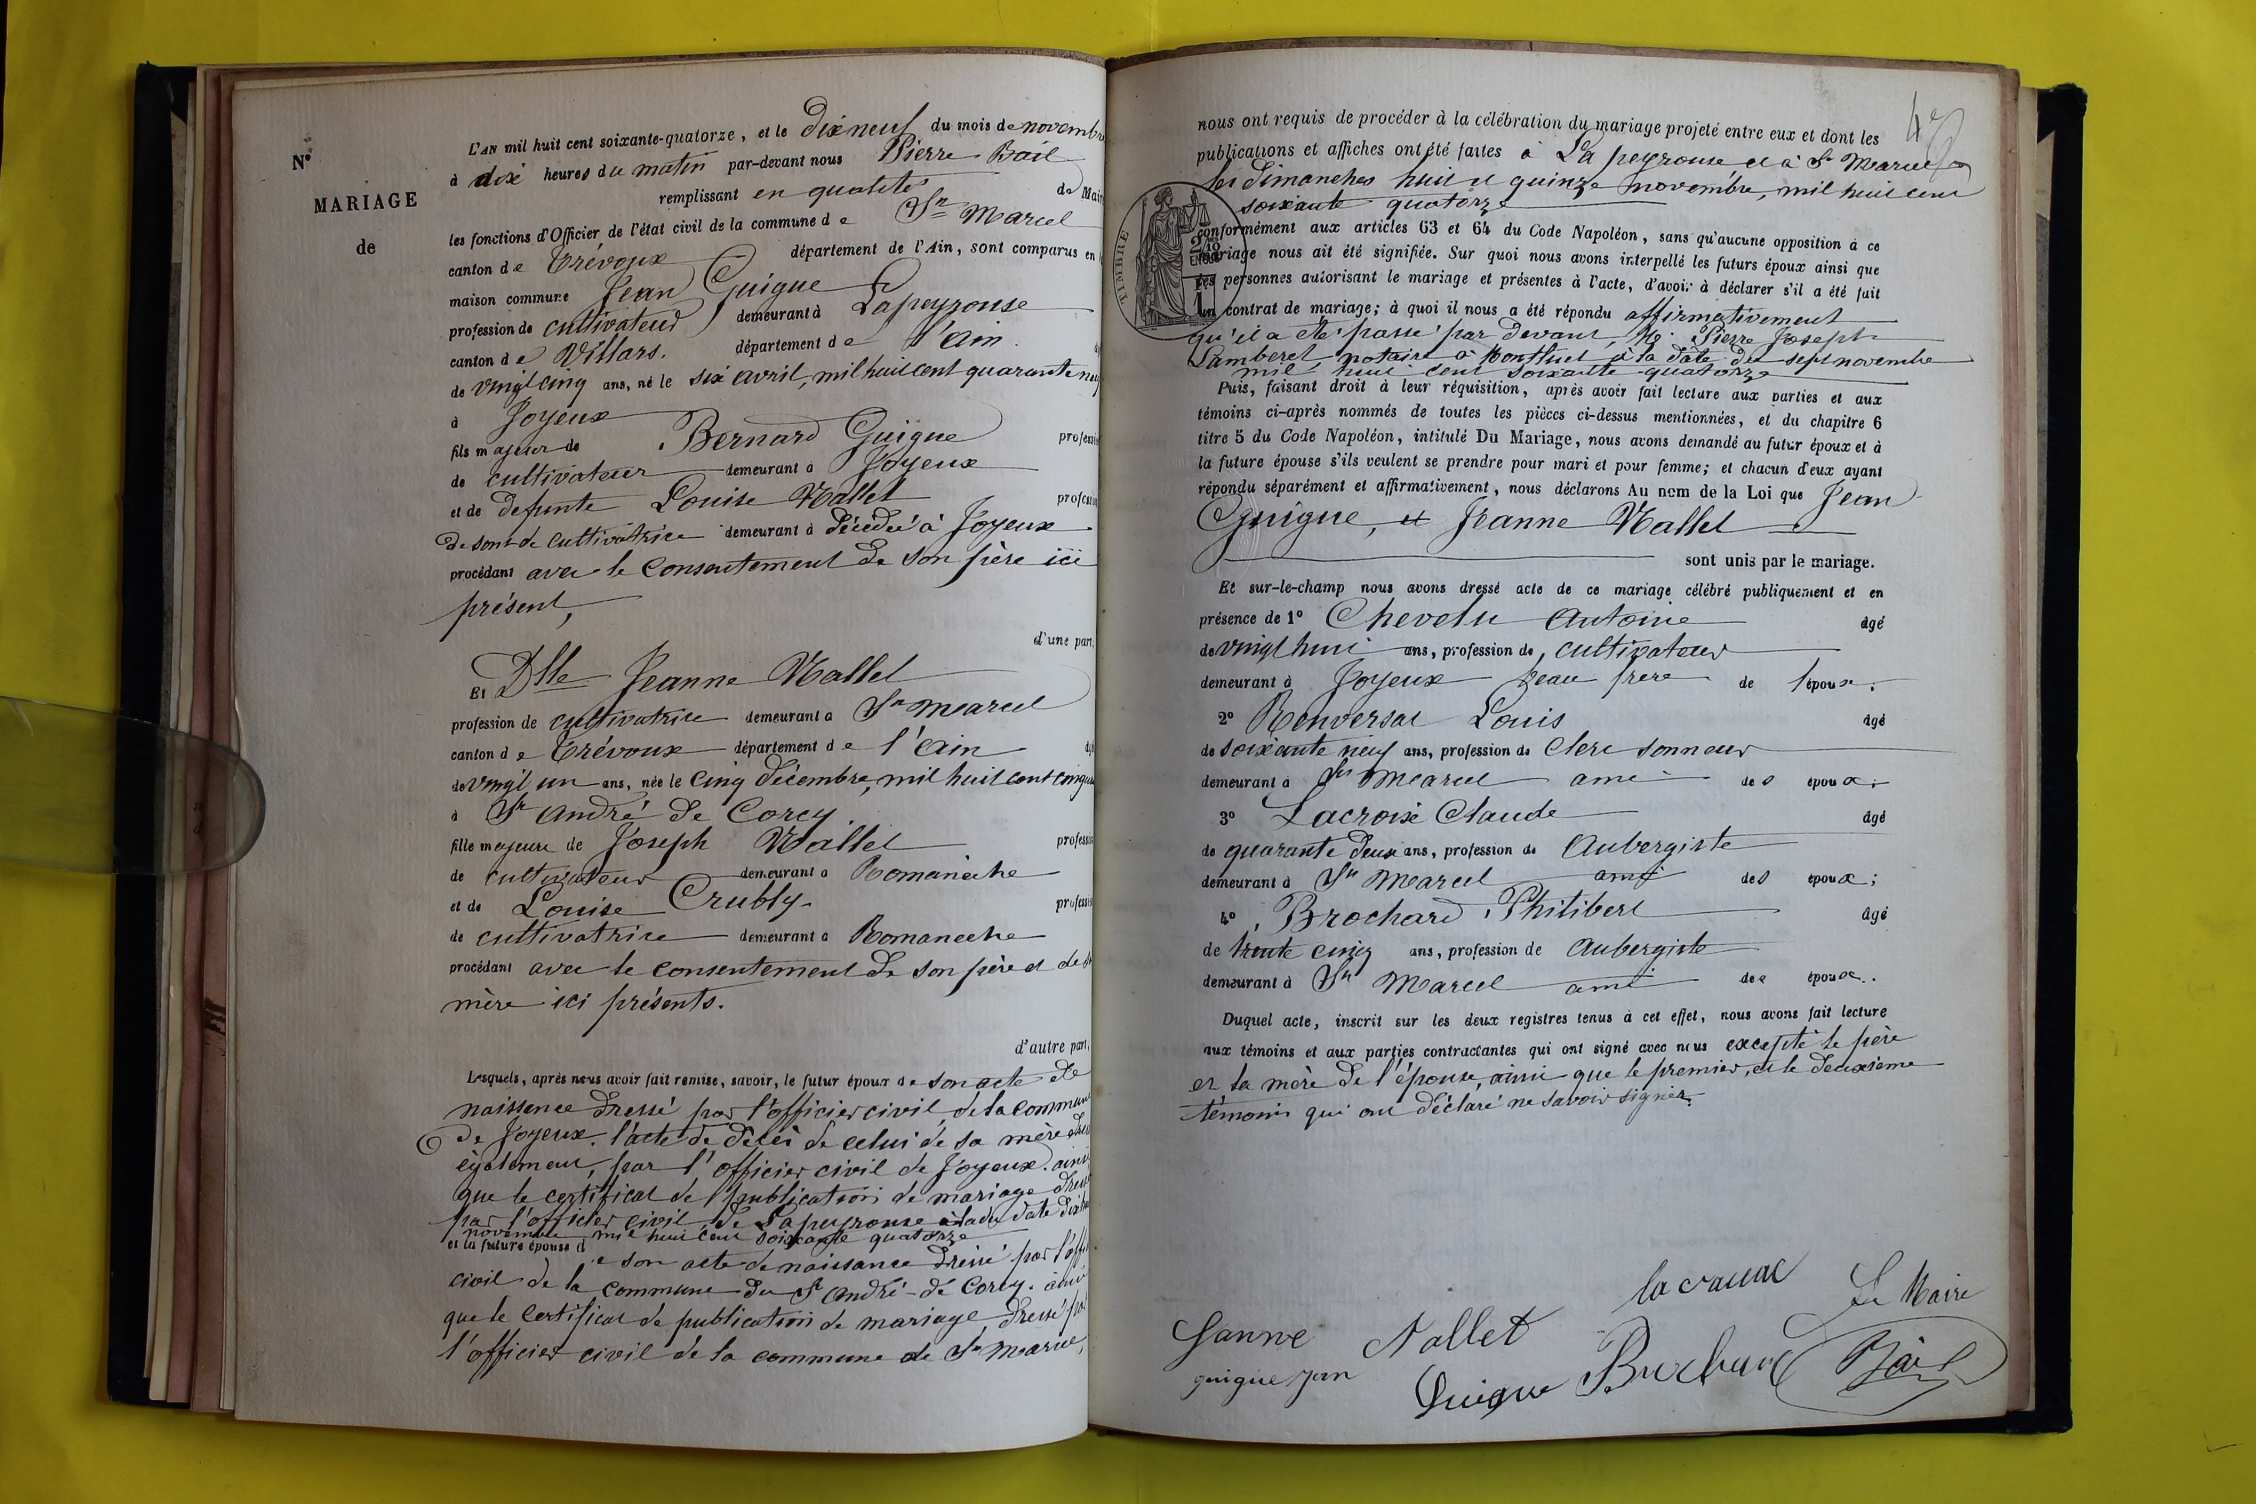 N°
MARIAGE
de
L'AN mil huit cent soixante-quatorze, et le Dix neuf du mois de novembre
à dix heures du matin par-devant nous Pierre Bail
remplissant en qualité de Maire
les fonctions d'Officier de l'état civil de la commune de St Marcel
canton de Trévoux département de l'Ain, sont comparus en la
maison commune Jean Guigue
profession de cultivateur demeurant à Lapeyrouse
canton de Villars. département de l'ain. âgé
de vingt cinq ans, né le six avril, mil huit cent quarante neuf
à Joyeux
fils majeur de Bernard Guigue profession
de cultivateur demeurant à Joyeux
et de defunte Louise Nallet profession
de cultivatrice demeurant à décédée à Joyeux
procédant avec le consentement de son père ici
présent,
d'une part,
Et Dlle Jeanne Nallet
profession de cultivatrice demeurant à St Marcel
canton de Trévoux département de l'ain âgée
de vingt un ans, née le cinq décembre, mil huit cent cinqua
à St André de Corcy
fille majeure de Joseph Nallet profession
de cultivateur demeurant à Romanèche
et de Louise Crubly. profession
de cultivatrice demeurant à Romaneche
procédant avec le consentement de son père et de sa
mère ici présents.
d'autre part,
Lesquels, après nous avoir fait remise, savoir, le futur époux de son acte de
naissence dressé par l'officier civil de la commune
de Joyeux. l'acte de décès de celui de sa mère
également, par l'officier civil de Joyeux. ainsi
que le certificat de publication de mariage dressé
par l'officier civil de Lapeyrouse à la du date dix huit
novembre mil huit cent soixante quatorze
et la future épouse de son acte de naissance dressé par l'officier
civil de la commune du St André-de Corcy. ainsi
que le certificat de publication de mariage, dressé par
l'officier civil de la commune de St Marcel,
4e
nous ont requis de procéder à la célébration du mariage projeté entre eux et dont les
publications et affiches ont été faites à La peyrouse et à St Marcel
les dimanches huit et quinze novembre, mil huit cent
soixante quatorze
TIMBRE
conformément aux articles 63 et 64 du Code Napoléon, sans qu'aucune opposition à ce
mariage nous ait été signifiée. Sur quoi nous avons interpellé les futurs époux ainsi que
les personnes autorisant le mariage et présentes à l'acte, d'avoir à déclarer s'il a été fait
un contrat de mariage; à quoi il nous a été répondu affirmativement
qu'il a été passé par devant, Me Pierre Joseph
Lamberet notaire à Montluel à la dâte du sept novembre
mil huit cent soixante-quatorze
Puis, faisant droit à leur réquisition, après avoir fait lecture aux parties et aux
témoins ci-après nommés de toutes les pièces ci-dessus mentionnées, et du chapitre 6
titre 5 du Code Napoléon, intitulé Du Mariage, nous avons demandé au futur époux et à
la future épouse s'ils veulent se prendre pour mari et pour femme; et chacun d'eux ayant
répondu séparément et affirmativement, nous déclarons Au nom de la Loi que Jean
Guigue, et Jeanne Nallet
sont unis par le mariage.
Et sur-le-champ nous avons dressé acte de ce mariage célébré publiquement et en
présence de 1° Chevelu Antoine âgé
de vingt huit ans, profession de cultivateur
demeurant à Joyeux beau frère de l'époux.
2° Renversat Louis âgé
de soixante neuf ans, profession de clerc sonneur
demeurant à St Marcel ami des époux.
3° Lacroix Claude âgé
de quarante deux ans, profession de Aubergiste
demeurant à St Marcel ami des époux;
4° Brochard Philibert âgé
de trente cinq ans, profession de Aubergiste
demeurant à St Marcel ami des époux.
Duquel acte, inscrit sur les deux registres tenus à cet effet, nous avons fait lecture
aux témoins et aux parties contractantes qui ont signé avec nous excepté le père
et la mère de l'épouse, ainsi que le premier, et le deuxième
témoins qui ont déclaré ne savoir signer.
Le Maire
Janne Nallet
guigue jan
Guigue
Bail